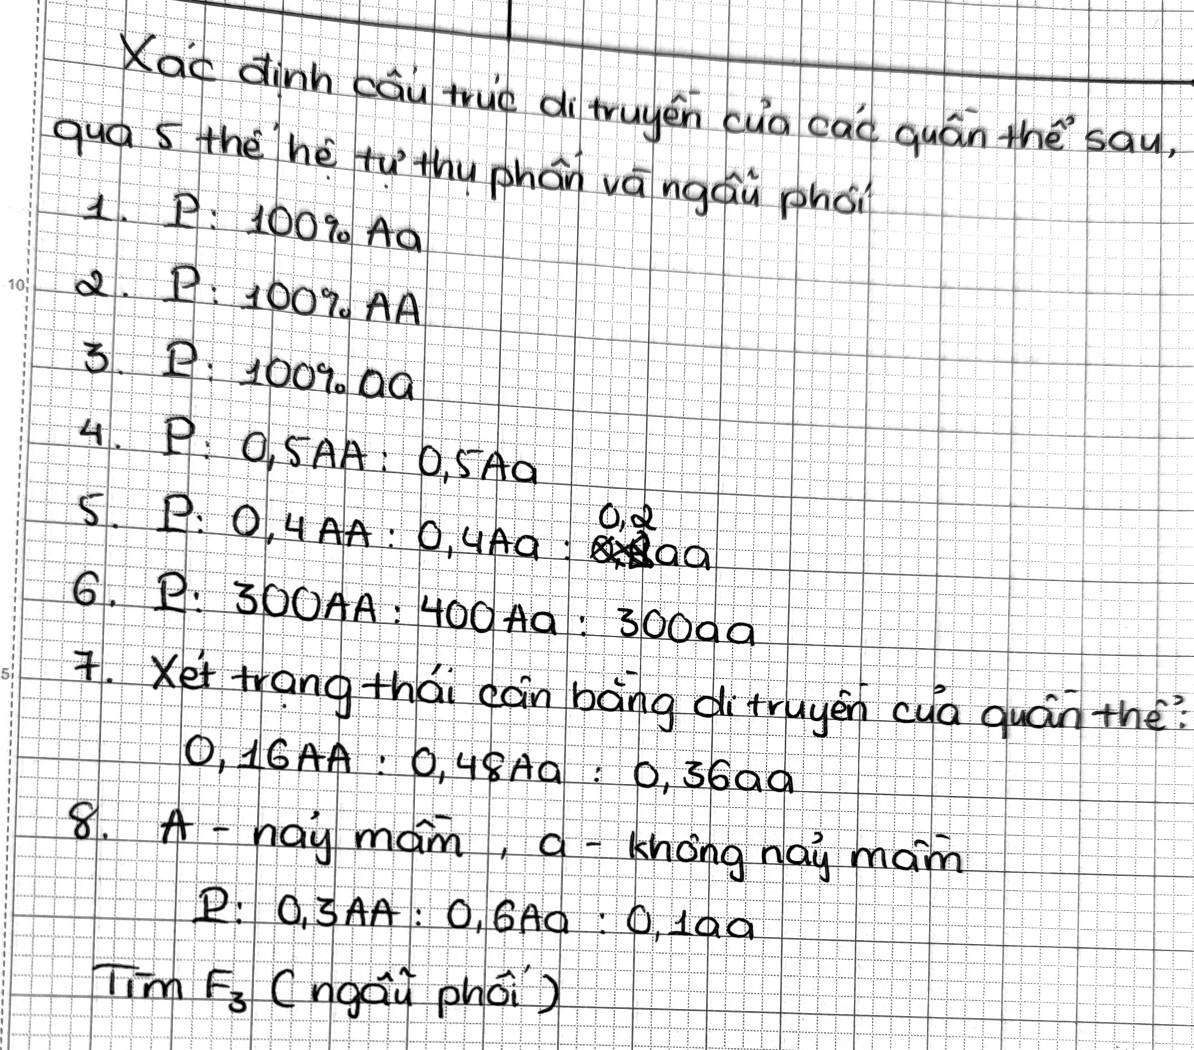 Xác định cấu trúc di truyền của các quần thể sau,
qua 5 thế hệ tự thụ phấn và ngẫu phối
1. P: 100% Aa
2. P: 100% AA
10
3. P: 100% aa
4. P: 0,5AA : 0,5Aa
5. P: 0,4AA : 0,4Aa : 0,2aa
6. P: 300AA : 400Aa : 300aa
5
7. Xét trạng thái cân bằng di truyền của quần thể:
0,16AA : 0,48Aa : 0,36aa
8. A - nảy mầm, a - không nảy mầm
P: 0,3AA : 0,6Aa : 0,1aa
Tìm F3 (ngẫu phối)